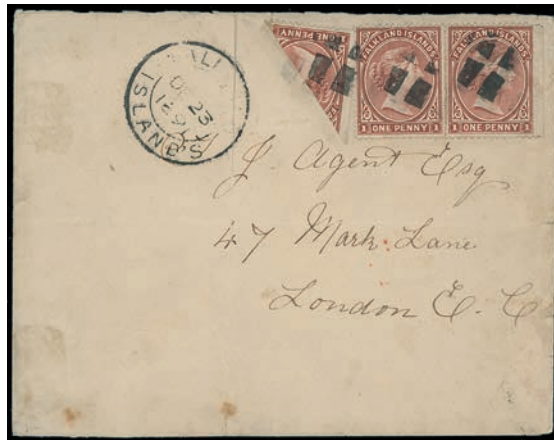 ONE PENNY
FALKLAND ISLANDS
1 ONE PENNY 1
FALKLAND ISLANDS
1 ONE PENNY 1
23
ISLANDS
J. Agent Esq
47 Mark Lane
London E. C